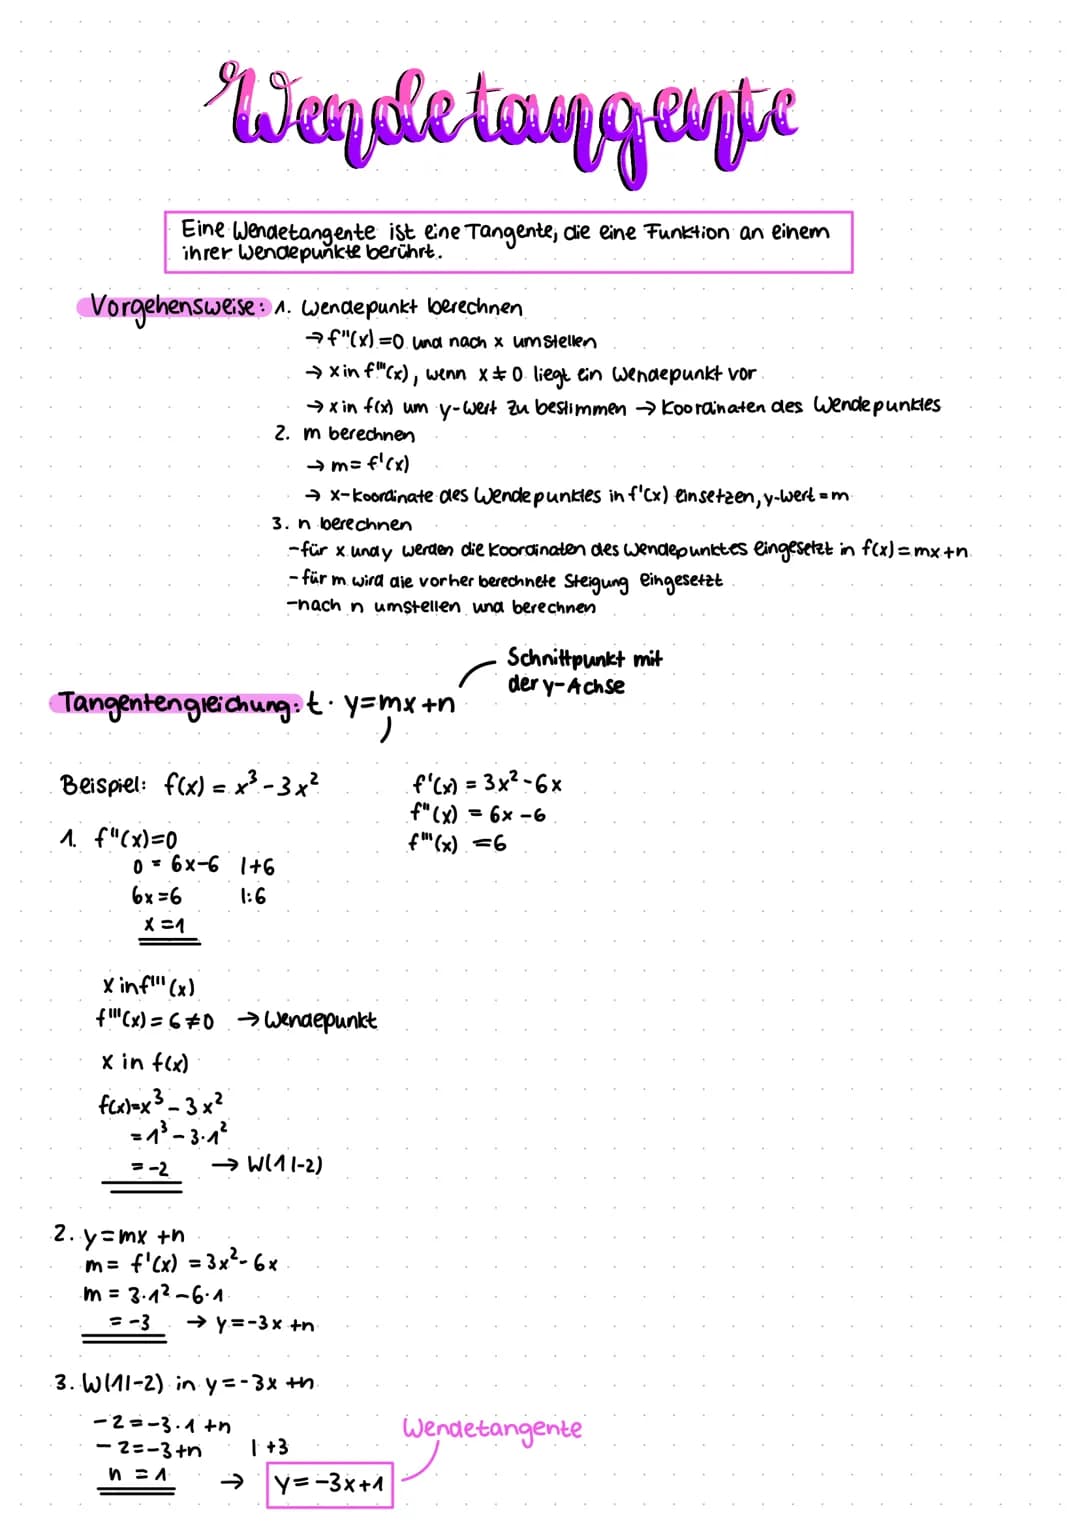 Wendetangente
Eine Wendetangente ist eine Tangente, die eine Funktion an einem
ihrer Wendepunkte berührt.
Vorgehensweise: 1. Wendepunkt berechnen
→ f''(x) = 0 und nach x umstellen
→ x in f'''(x), wenn x ≠ 0 liegt ein Wendepunkt vor
→ x in f(x) um y-Wert zu bestimmen → Koordinaten des Wendepunktes
2. m berechnen
→ m = f'(x)
→ x-Koordinate des Wendepunktes in f'(x) einsetzen, y-Wert = m
3. n berechnen
- für x und y werden die Koordinaten des Wendepunktes eingesetzt in f(x) = mx+n
- für m wird die vorher berechnete Steigung eingesetzt
- nach n umstellen und berechnen
Schnittpunkt mit
der y-Achse
Tangentengleichung: t · y=mx+n
Beispiel: f(x) = x³ - 3x²
f'(x) = 3x² - 6x
f''(x) = 6x - 6
f'''(x) = 6
1. f''(x)=0
0 = 6x-6 |+6
6x = 6 |:6
x = 1
x in f'''(x)
f'''(x) = 6 ≠ 0 → Wendepunkt
x in f(x)
f(x)=x³ - 3x²
= 1³ - 3·1²
= -2 → W(1|-2)
2. y=mx +n
m = f'(x) = 3x² - 6x
m = 3·1² - 6·1
= -3 → y=-3x +n
3. W(1|-2) in y = -3x +n
-2 = -3·1 +n
-2 = -3+n | +3
n = 1 → y = -3x+1
Wendetangente